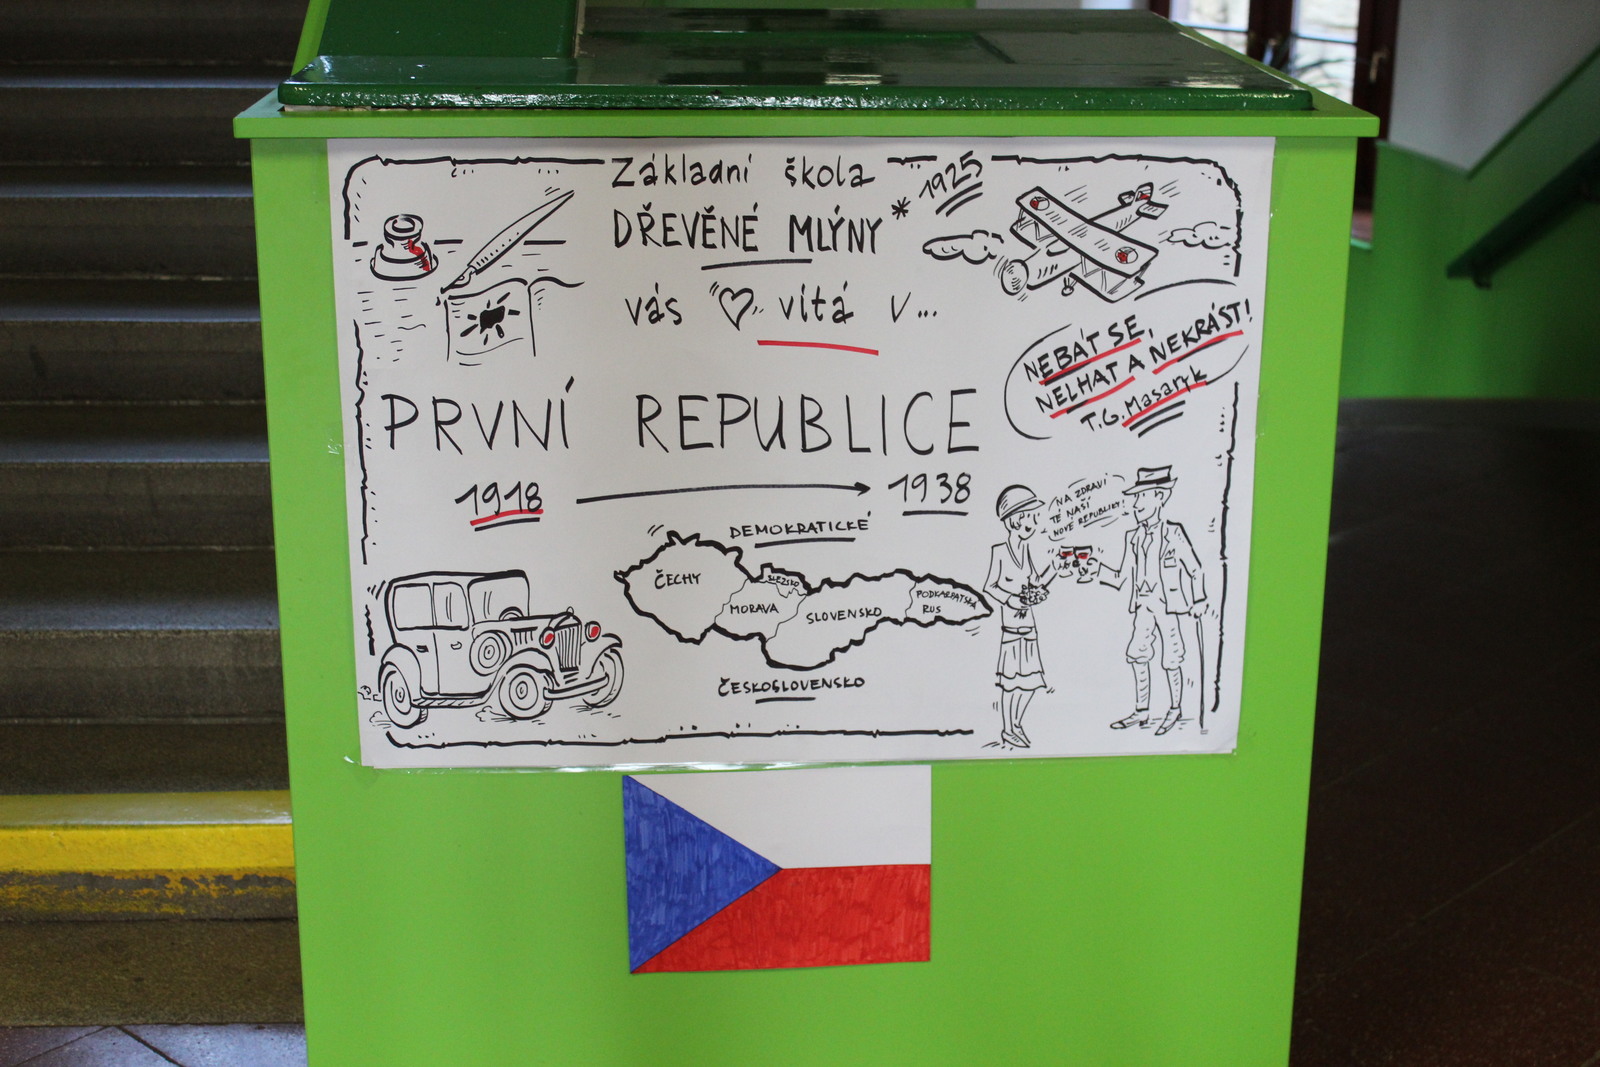 Základní škola
DŘEVĚNÉ MLÝNY
* 1925
vás vítá v...
NEBÁT SE,
NELHAT A NEKRÁST!
T.G. Masaryk
PRVNÍ REPUBLICE
1918 1938
NA ZDRAVÍ
TÉ NAŠÍ
NOVÉ REPUBLIKY!
DEMOKRATICKÉ
ČECHY
SLEZSKO
MORAVA
SLOVENSKO
PODKARPATSKÁ
RUS
ČESKOSLOVENSKO